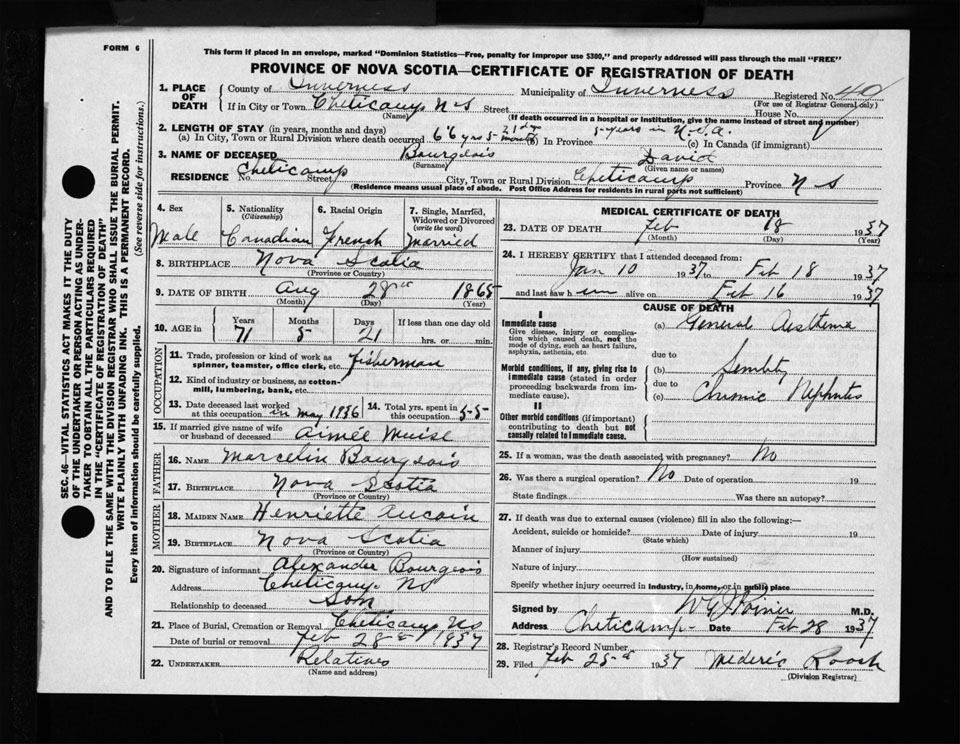 FORM 6
This form if placed in an envelope, marked "Dominion Statistics—Free, penalty for improper use $300," and properly addressed will pass through the mail "FREE"
PROVINCE OF NOVA SCOTIA—CERTIFICATE OF REGISTRATION OF DEATH
SEC. 46—VITAL STATISTICS ACT MAKES IT THE DUTY
OF THE UNDERTAKER OR PERSON ACTING AS UNDER-
TAKER TO OBTAIN ALL THE PARTICULARS REQUIRED
IN THE "CERTIFICATE OF REGISTRATION OF DEATH"
AND TO FILE THE SAME WITH THE DIVISION REGISTRAR WHO SHALL ISSUE THE BURIAL PERMIT.
WRITE PLAINLY WITH UNFADING INK. THIS IS A PERMANENT RECORD.
Every item of information should be carefully supplied. (See reverse side for instructions.)
1. PLACE OF DEATH
County of Inverness Municipality of Inverness Registered No. 40
(For use of Registrar General only)
If in City or Town Cheticamp N S Street House No.
(Name) (If death occurred in a hospital or institution, give the name instead of street and number)
2. LENGTH OF STAY (in years, months and days)
(a) In City, Town or Rural Division where death occurred 66 yrs 5 months 21 dys (b) In Province 5 years in U.S.A. (c) In Canada (if immigrant)
3. NAME OF DECEASED Bourgeois David
(Surname) (Given name or names)
RESIDENCE No. Cheticamp Street City, Town or Rural Division Cheticamp Province N S
(Residence means usual place of abode. Post Office Address for residents in rural parts not sufficient)
4. Sex Male
5. Nationality (Citizenship) Canadian
6. Racial Origin French
7. Single, Married, Widowed or Divorced (write the word) married
8. BIRTHPLACE Nova Scotia
(Province or Country)
9. DATE OF BIRTH Aug 28 1865
(Month) (Day) (Year)
10. AGE in Years 71 Months 5 Days 21 If less than one day old hrs. or min.
OCCUPATION
11. Trade, profession or kind of work as spinner, teamster, office clerk, etc. fisherman
12. Kind of industry or business, as cotton-mill, lumbering, bank, etc.
13. Date deceased last worked at this occupation in may 1936
14. Total yrs. spent in this occupation 55
15. If married give name of wife or husband of deceased Aimée Muise
FATHER
16. NAME Marcelin Bourgeois
17. BIRTHPLACE Nova Scotia
(Province or Country)
MOTHER
18. MAIDEN NAME Henriette Aucoin
19. BIRTHPLACE Nova Scotia
(Province or Country)
20. Signature of informant Alexander Bourgeois
Address Cheticamp NS
Relationship to deceased Son
21. Place of Burial, Cremation or Removal Cheticamp NS
Date of burial or removal Feb 1937
22. UNDERTAKER Relatives
(Name and address)
MEDICAL CERTIFICATE OF DEATH
23. DATE OF DEATH Feb 18 1937
(Month) (Day) (Year)
24. I HEREBY CERTIFY that I attended deceased from:
Jan 10 1937 to Feb 18 1937
and last saw him alive on Feb 16 1937
CAUSE OF DEATH
I
Immediate cause
Give disease, injury or complication which caused death, not the mode of dying, such as heart failure, asphyxia, asthenia, etc.
(a) General Asthema
due to
Morbid conditions, if any, giving rise to immediate cause (stated in order proceeding backwards from immediate cause).
(b) Senility
due to
(c) Chronic Nephritis
II
Other morbid conditions (if important) contributing to death but not causally related to immediate cause.
25. If a woman, was the death associated with pregnancy? No
26. Was there a surgical operation? No Date of operation 19
State findings Was there an autopsy?
27. If death was due to external causes (violence) fill in also the following:—
Accident, suicide or homicide? Date of injury 19
(State which)
Manner of injury
(How sustained)
Nature of injury
Specify whether injury occurred in industry, in home, or in public place
Signed by M.D.
Address Cheticamp Date Feb 28 1937
28. Registrar's Record Number
29. Filed Feb 1937 Mederic
(Division Registrar)